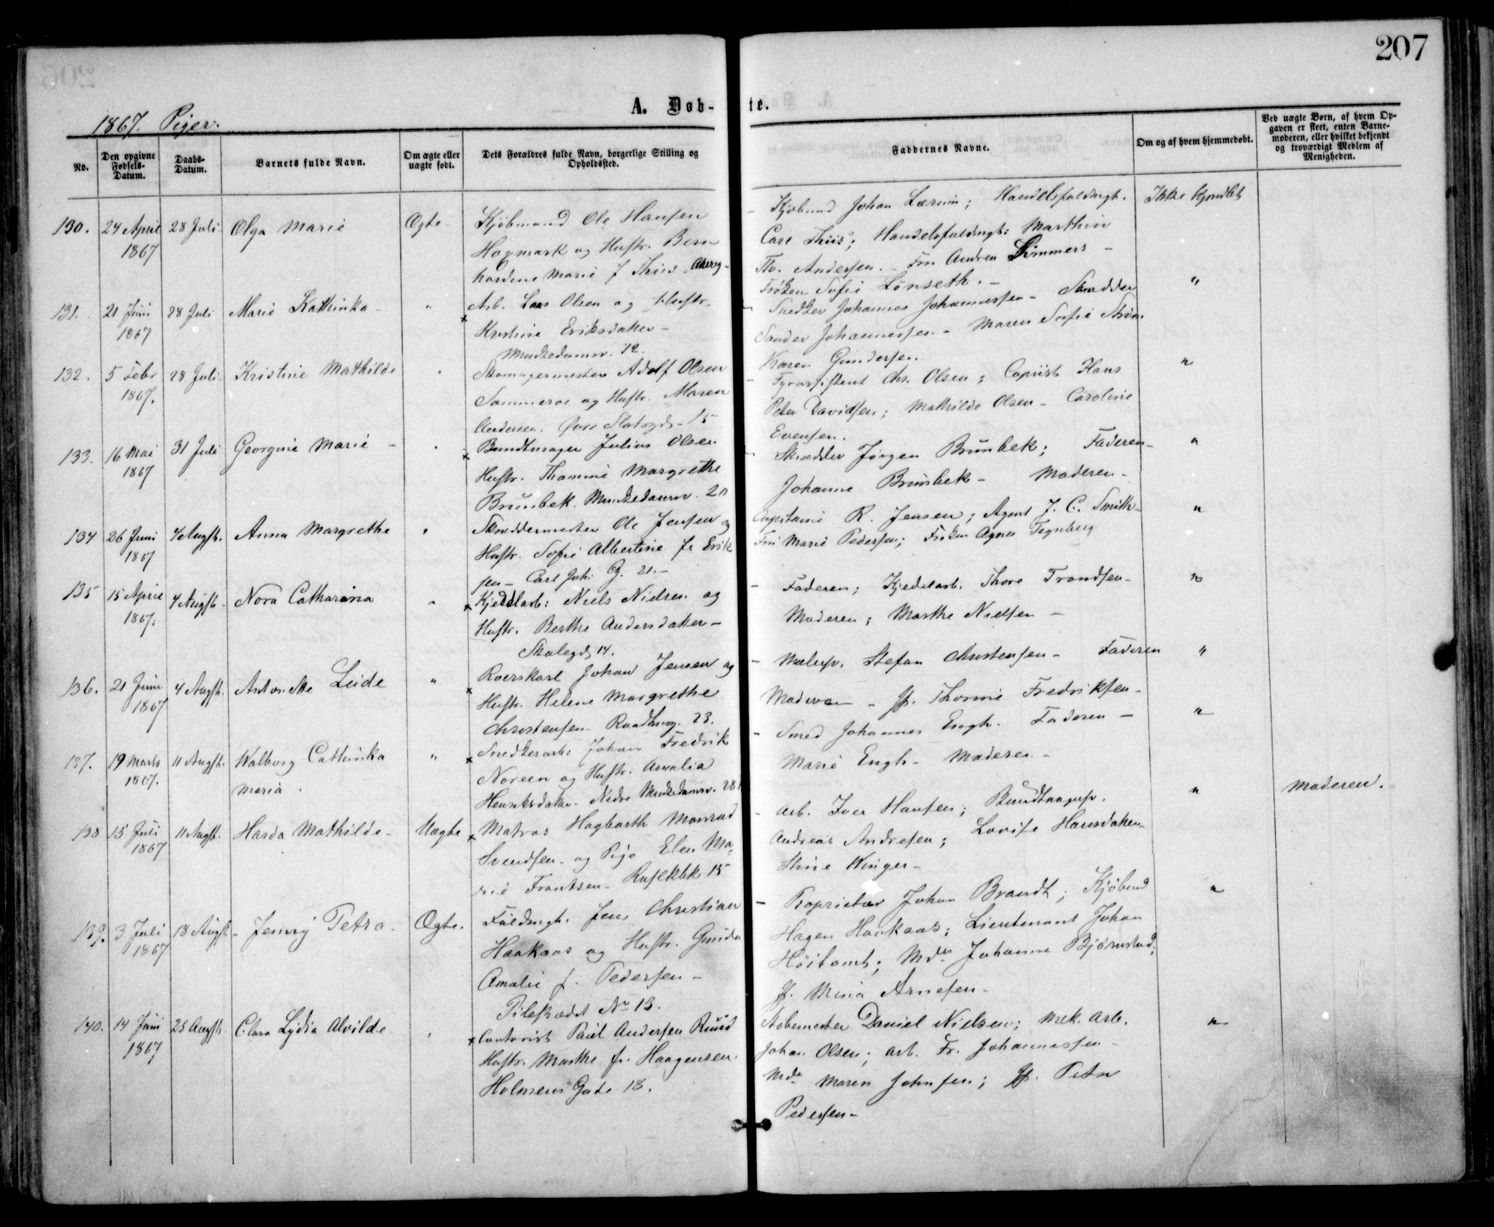 207
A. Døb-te.
1867. Piger.
No.
Den opgivne Fødsels-Datum.
Daabs-Datum.
Barnets fulde Navn.
Om ægte eller uægte født.
Dets Forældres fulde Navn, borgerlige Stilling og Opholdssted.
Faddernes Navne.
Om og af hvem hjemmedøbt.
Ved uægte Børn, af hvem Opgaven er skeet, enten Barnemoderen, eller hvilket bekjendt og troværdigt Medlem af Menigheden.
130. 24 April 1867 28 Juli Olga Marie Ægte
Kjøbmand Ole Hansen
Hagmark og Hustr. Bern
hardine Marie f. Thiis
Kjøbmd Johan Lærum; Handelsfuldmgt.
Carl Thiis; Handelsfuldmgt: Marthin
Th. Andersen. - Fru Andrea Simmers -
Frøken Sofie Lønseth. -
Ikke hjemdbt
131. 21 Juni 1867 28 Juli Marie Kathinka - "
Arb. Lars Olsen og Hustr.
Kristine Eriksdatter -
Munkedamsv. 12.
Snedker Johannes Johannessen - Skrædder
Johannessen - Maren Sofie
Karen Gundersen.
"
132. 5 Febr 1867. 28 Juli Kristine Mathilde "
Skomagermester Adolf Olsen
Sommeroe og Hustr. Maren
Andersen. Øvre Slotsgd. 15
Fyrassistent Chr. Olsen; Copiist Hans
Peter Davidsen; Mathilde Olsen - Caroline
Evensen.
"
133. 16 Mai 1867 31 Juli Georgine Marie - "
Bundtmager Julius Olsen
Hustr. Thamine Margrethe
Brunbek. Munkedamsv. 20
Skrædder Jørgen Brunbek; Faderen -
Johanne Brunbek - Moderen -
"
134 26 Juni 1867 4 Augst. Anna Margrethe "
Skræddermester Ole Jensen og
Hustr. Sofie Albertine f. Erik
sen - Carl Joh. G. 21. -
Capitaine R. Jensen; Agent J. C. Smith -
Fru Marie Pedersen; Frøken Agnes Tegnberg
"
135 15 April 1867. 4 Augst. Nora Catharina "
Kjedelarb: Niels Nielsen og
Hustr. Berthe Andersdatter -
14.
Faderen; Kjedelarb. Thore Trondsen -
Moderen; Marthe Nielsen -
"
136. 21 Juni 1867 4 Augst. Antonette Leide "
Roerskarl Johan Jensen og
Hustr. Helene Margrethe
Christensen. Raadhusg. 23.
Stefan Christensen - Faderen
Moderen - Jfr. Thomine Fredriksen -
"
137. 19 Marts 1867. 11 Augst. Walborg Cathinka Maria. "
Snedkerarb: Johan Fredrik
Noreen og Hustr. Amalia
Henriksdatter. Nedre Munkedamsv. 28
Smed Johannes Engh. Faderen -
Marie Engh - Moderen -
"
138 15 Juli 1867 11 Augst. Harda Mathilde - Uægte
Matros Hagbarth Monrad
Svendsen - og Pige Elen Ma-
rie Frantsen - Ruseløkb. 15
Arb. Iver Hansen; Bundtmagersv.
Andreas Andresen; Lovise Hansdatter.
Stine Winger -
"
Moderen.
139. 3 Juli 1867 18 Augst - Jenny Petra. Ægte.
Fuldmgt. Jens Christian
Haakaas og Hustr. Gunda
Amalie f. Pedersen -
Pilestrædet No 13.
Proprietær Johan Brandt; Kjøbmd
Hagen Haakaas; Lieutenant Johan
Høitomt; Mdm Johanne Bjørnstad;
Jfr. Mina Arnesen -
"
140. 14 Juni 1867 25 Augst. Clara Lydia Alvilde "
Contorist Paul Andersen Ruud
Hustr. Marthe f. Haagensen.
Holmens Gade 13.
Stobemester Daniel Nielsen; Mek. Arb.
Johan Olsen; Arb. Fr. Johannessen -
Mdm Maren Johnsen; Jfr. Petra
Pedersen -
"